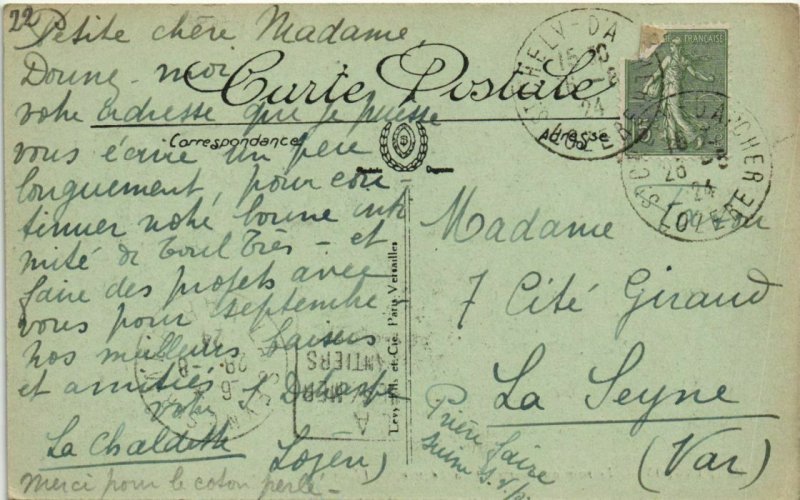 22
Petite chère Madame,
Donnez-moi
votre adresse que je puisse
vous écrire un peu
longuement, pour con
tinuer notre bonne inti
mité de Toul Très - et
faire des projets avec
vous pour septembre
nos meilleurs baisers
et amitiés
votre
La Chaldette Lozère)
Merci pour le coton perlé -
Carte Postale
Correspondance
Adresse
Levy Fils et Cie, Paris Versailles
FRANÇAISE
15
ST CHELY-D'APCHER
LOZERE
24
ST CHELY D'APCHER
LOZERE
28
24
LA
MER
ANTIERS
Madame
7 Cité Giraud
La Seyne
(Var)
Prière faire
suivre S.V.P.